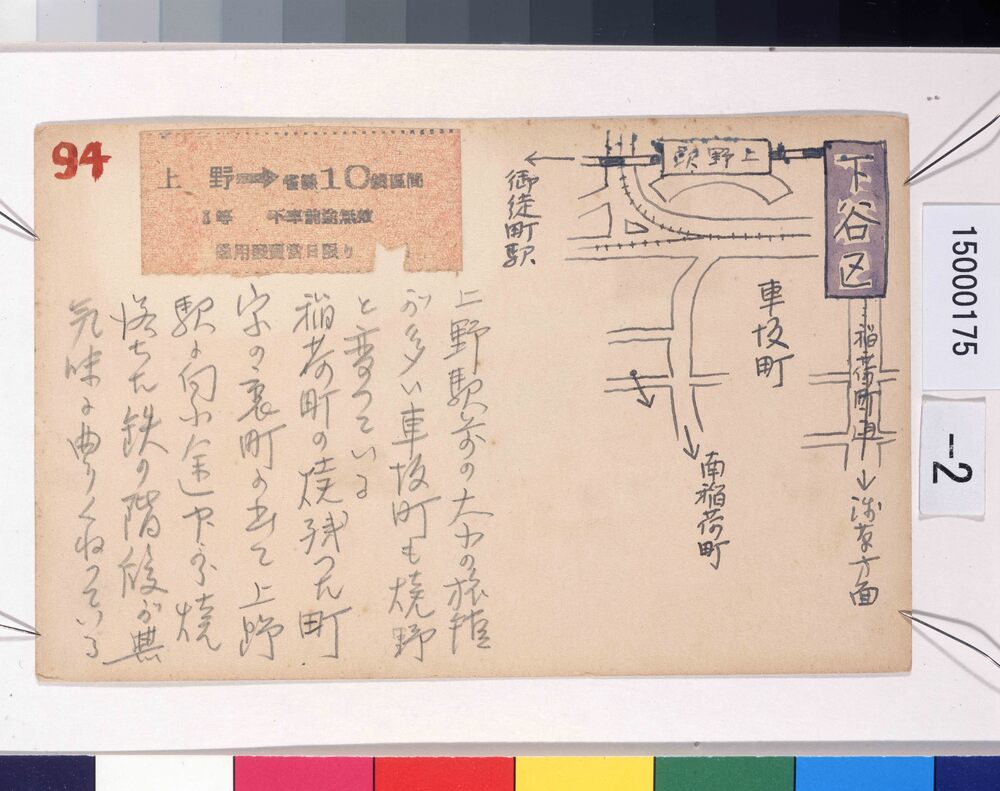 94
上野→省線10銭区間
3等 下車前途無効
通用発売当日限り
上野駅
下谷区
御徒町駅
車坂町
稲荷町車
南稲荷町
浅草方面
上野駅前の大小の旅館
が多い車坂町も焼野
と変っている
稲荷町の焼残った町
家の裏町の出て上野
駅に向ふ途中に焼
落ちた鉄の階段が無
気味に曲りくねっている
15000175
-2